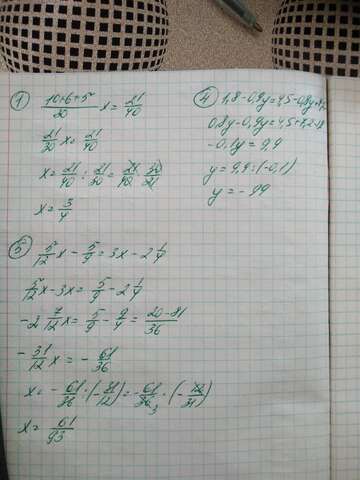 ① (10+6+5)/20 x = 21/40
21/20 x = 21/40
x = 21/40 : 21/20 = 21/40 · 20/21
x = 3/4
④ 1,8-0,9y=4,5-0,8y+
0,8y-0,9y=4,5+7,2-1,8
-0,1y = 9,9
y = 9,9:(-0,1)
y = - 99
⑤ 5/12 x - 5/9 = 3x - 2 1/4
5/12 x - 3x = 5/9 - 2 1/4
-2 7/12 x = 5/9 - 9/4 = (20-81)/36
- 31/12 x = - 61/36
x = - 61/36 : (-31/12) = -61/36 3 · (-12/31)
x = 61/93